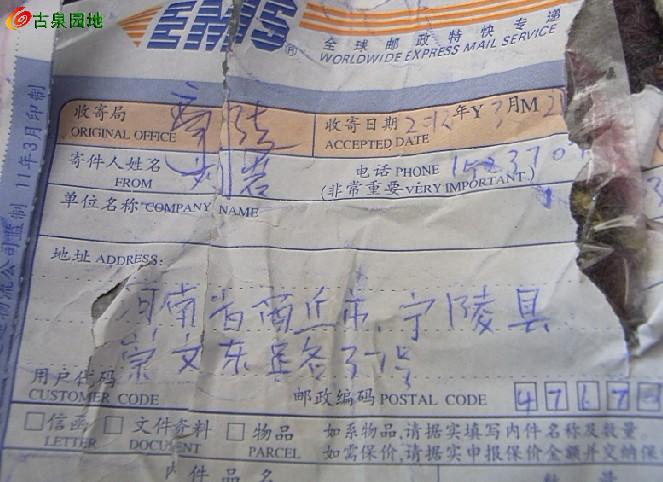 古泉园地
EMS®
全球邮政特快专递
WORLDWIDE EXPRESS MAIL SERVICE
11年3月印制
收寄局
ORIGINAL OFFICE
宁陵
收寄日期
ACCEPTED DATE
年Y 3月M
寄件人姓名
FROM
刘岩
电话 PHONE
(非常重要 VERY IMPORTANT.)
单位名称 COMPANY NAME
地址 ADDRESS:
河南省商丘市,宁陵县
用户代码
CUSTOMER CODE
邮政编码 POSTAL CODE 4767
信函 文件资料 物品
LETTER DOCUMENT PARCEL
如系物品,请据实填写内件名称及数量。
如需保价,请据实申报保价金额并交纳保
内件品名